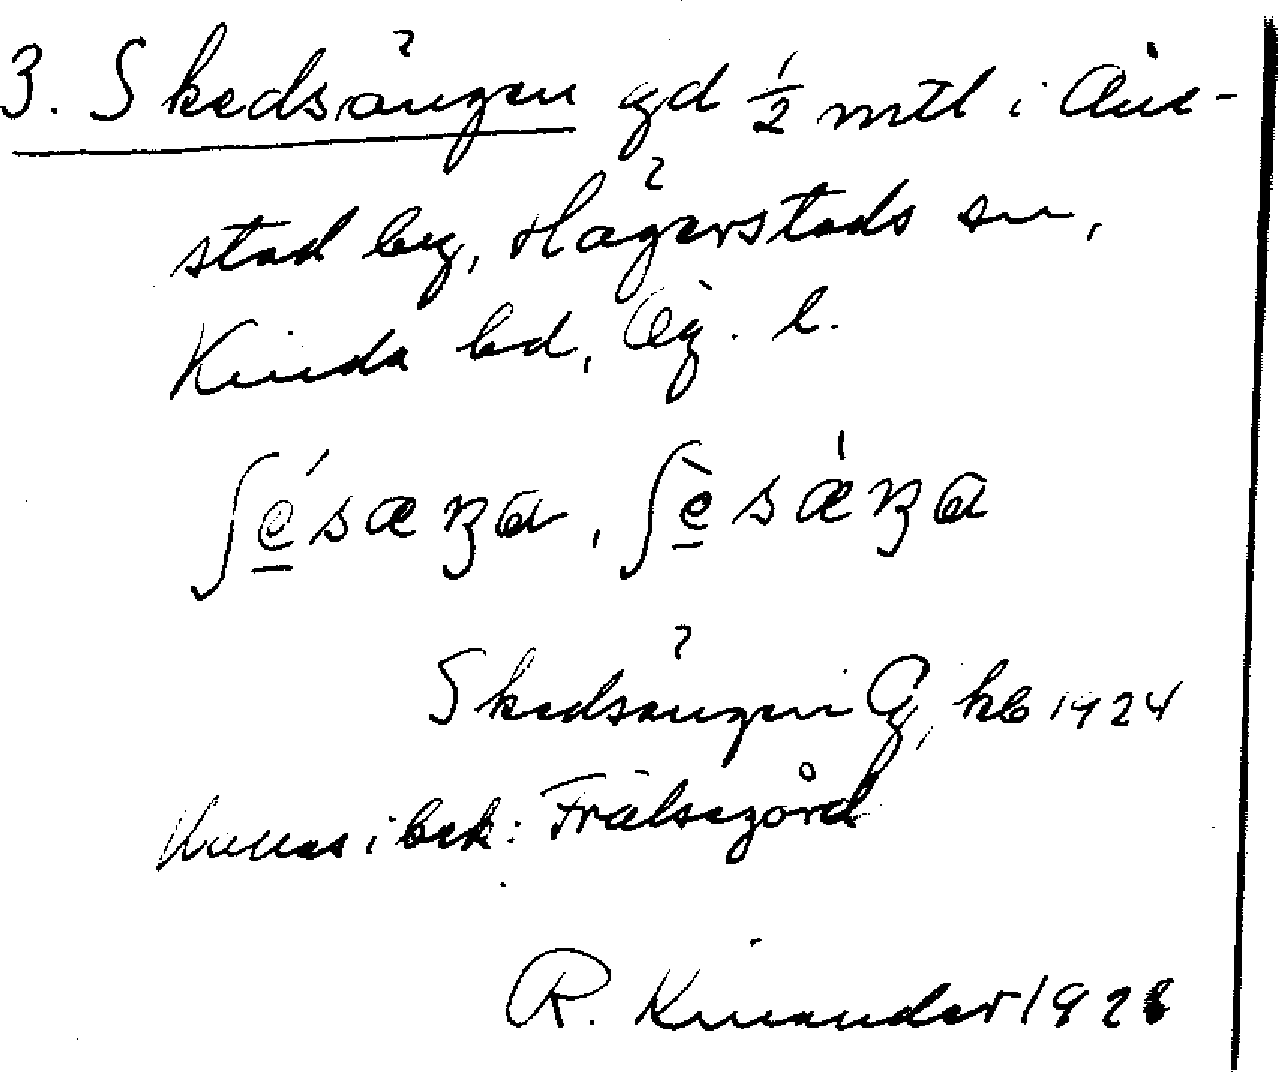 3. Skedsängen gd ½ mtl i Äne-
stad by, Hägerstads sn,
Kinda hd, Ög. l.
ʃé̱sæŋɷ, ʃè̱sǽŋɷ
Skedsängen G, kb 1924
Numas i bek: Frälsegård
R. Kinander 1928